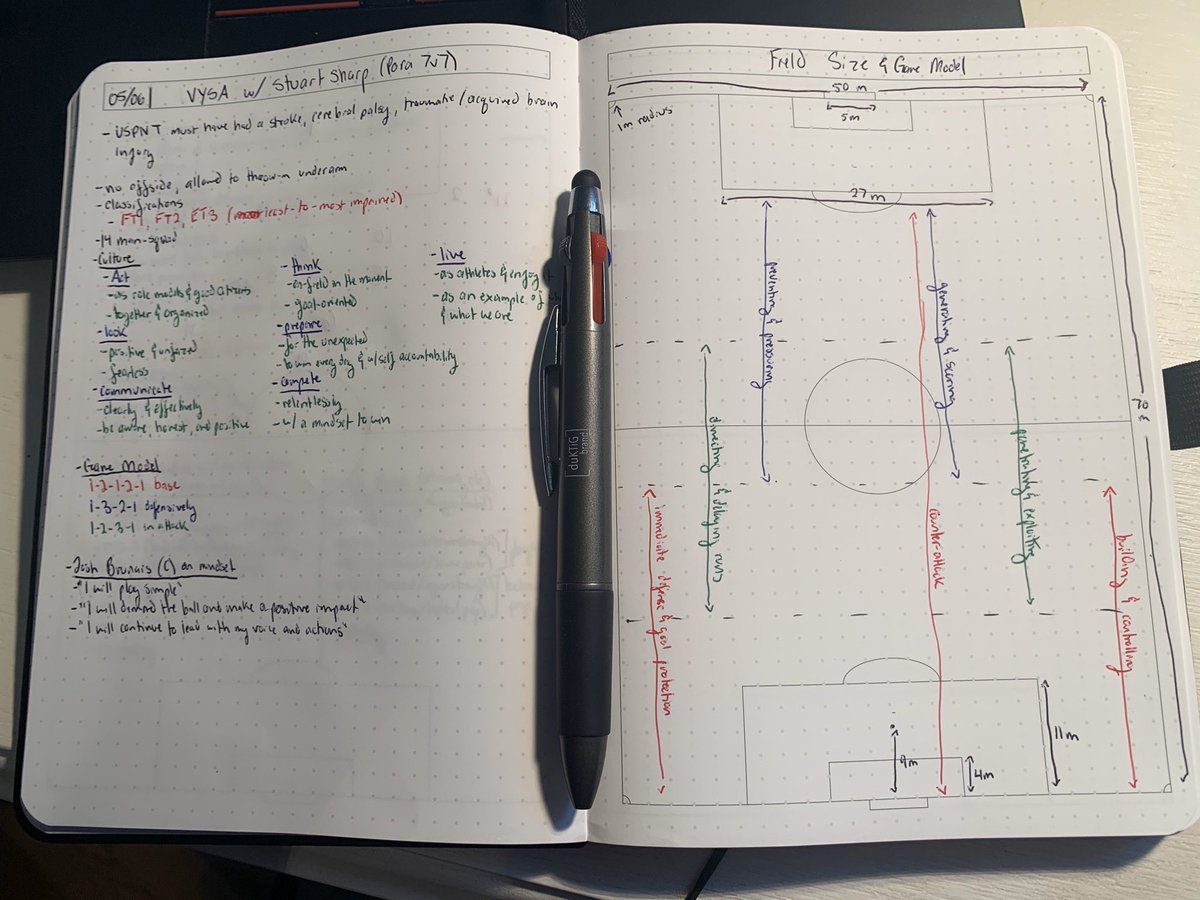 05/06 VYSA w/ Stuart Sharp (Para 7v7)
- USPNT must have had a stroke, cerebral palsy, traumatic/acquired brain
injury
- no offside, allowed to throw-in underarm
- classifications
- FT1, FT2, FT3 (least-to-most impaired)
- 14 man-squad
- Culture
- Act
- as role models & good citizens
- together & organized
- look
- positive & unfazed
- fearless
- communicate
- clearly & effectively
- be aware, honest, and positive
- think
- on-field in the moment
- goal-oriented
- prepare
- for the unexpected
- to win every day & w/ self accountability
- compete
- relentlessly
- w/ a mindset to win
- live
- as athletes & enjoy
- as an example of
& what we are
- Game Model
1-2-1-2-1 base
1-3-2-1 defensively
1-2-3-1 in attack
- Josh Brunais (C) on mindset
- "I will play simple"
- "I will demand the ball and make a positive impact"
- "I will continue to lead with my voice and actions"
duKTiG
brand
Field Size & Game Model
50 m
1m radius
5m
27 m
preventing & pressing
generating & scoring
70 m
directing & delaying runs
penetrating & exploiting
immediate defense & goal protection
counter-attack
building & controlling
9m
4m
11m